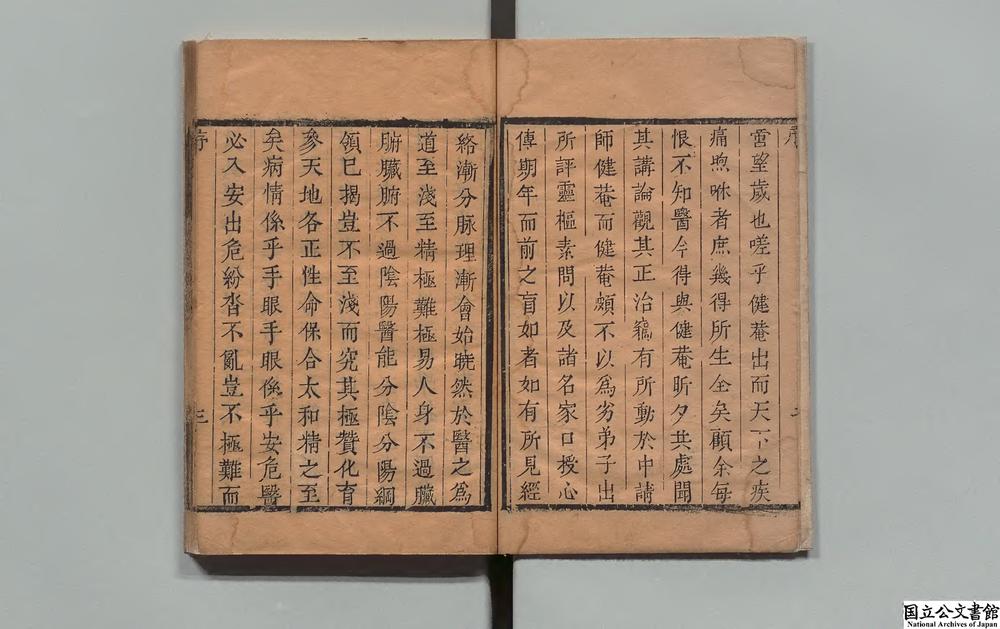 序
啻望歲也嗟乎健菴出而天下之疾
痛喣咻者庶幾得所生全矣顧余每
恨不知醫今得與健菴昕夕共處聞
其講論觀其正治竊有所動於中請
師健菴而健菴頗不以爲劣弟子出
所評靈樞素問以及諸名家口授心
傳期年而前之盲如者如有所見經
絡漸分脉理漸會始曉然於醫之爲
道至淺至精極難極易人身不過臟
腑臟腑不過陰陽醫能分陰分陽綱
領已揭豈不至淺而究其極贊化育
參天地各正性命保合太和精之至
矣病情係乎手眼手眼係乎安危醫
必入安出危紛沓不亂豈不極難而
序
三
国立公文書館
National Archives of Japan